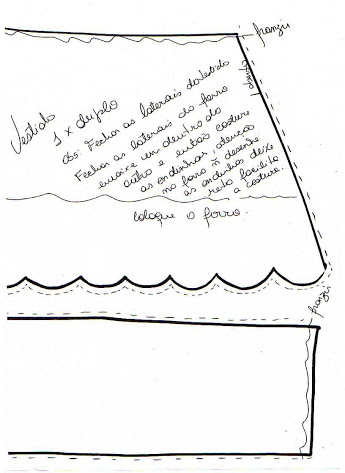 franzir
Vestido
1 x duplo
Obs: Fechar as laterais do vestido
Fechar as laterais do forro
encaixe um dentro do
outro e então costure
as ondinhas, atenção
no forro ñ desenhe
as ondinhas deixe
reto facilita
a costura.
coloque o forro.
franzir